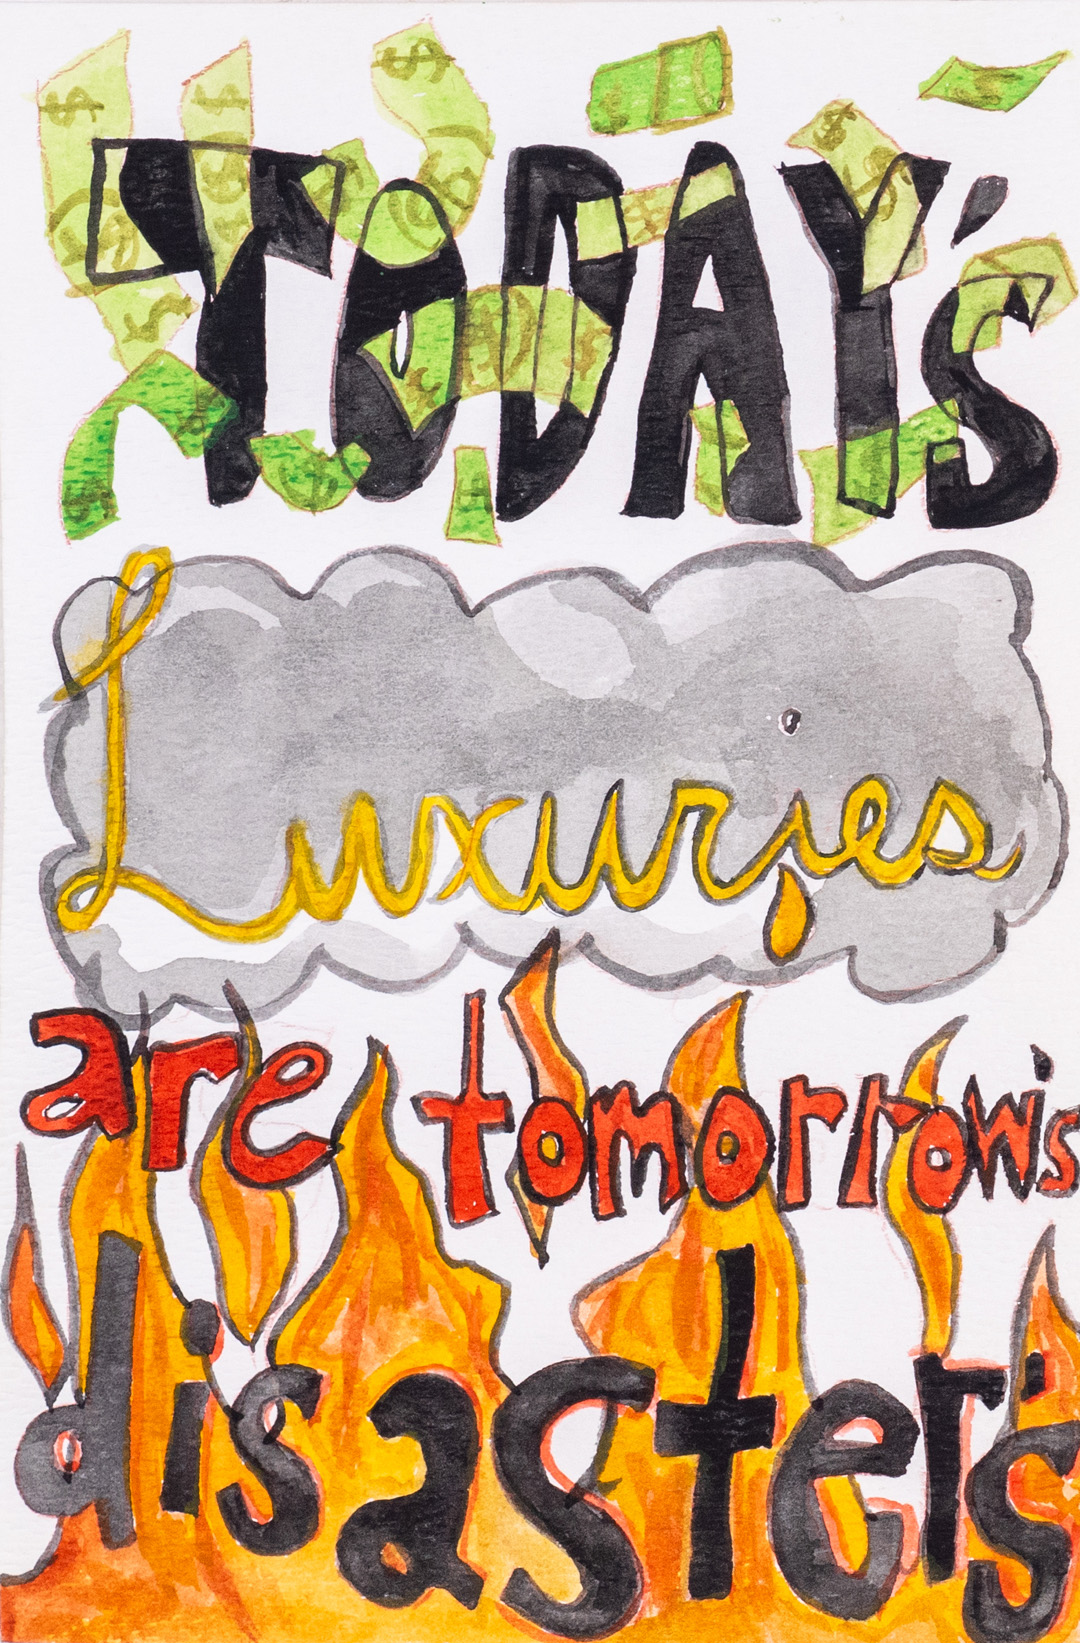 TODAY's
Luxuries
are tomorrow's
disasters